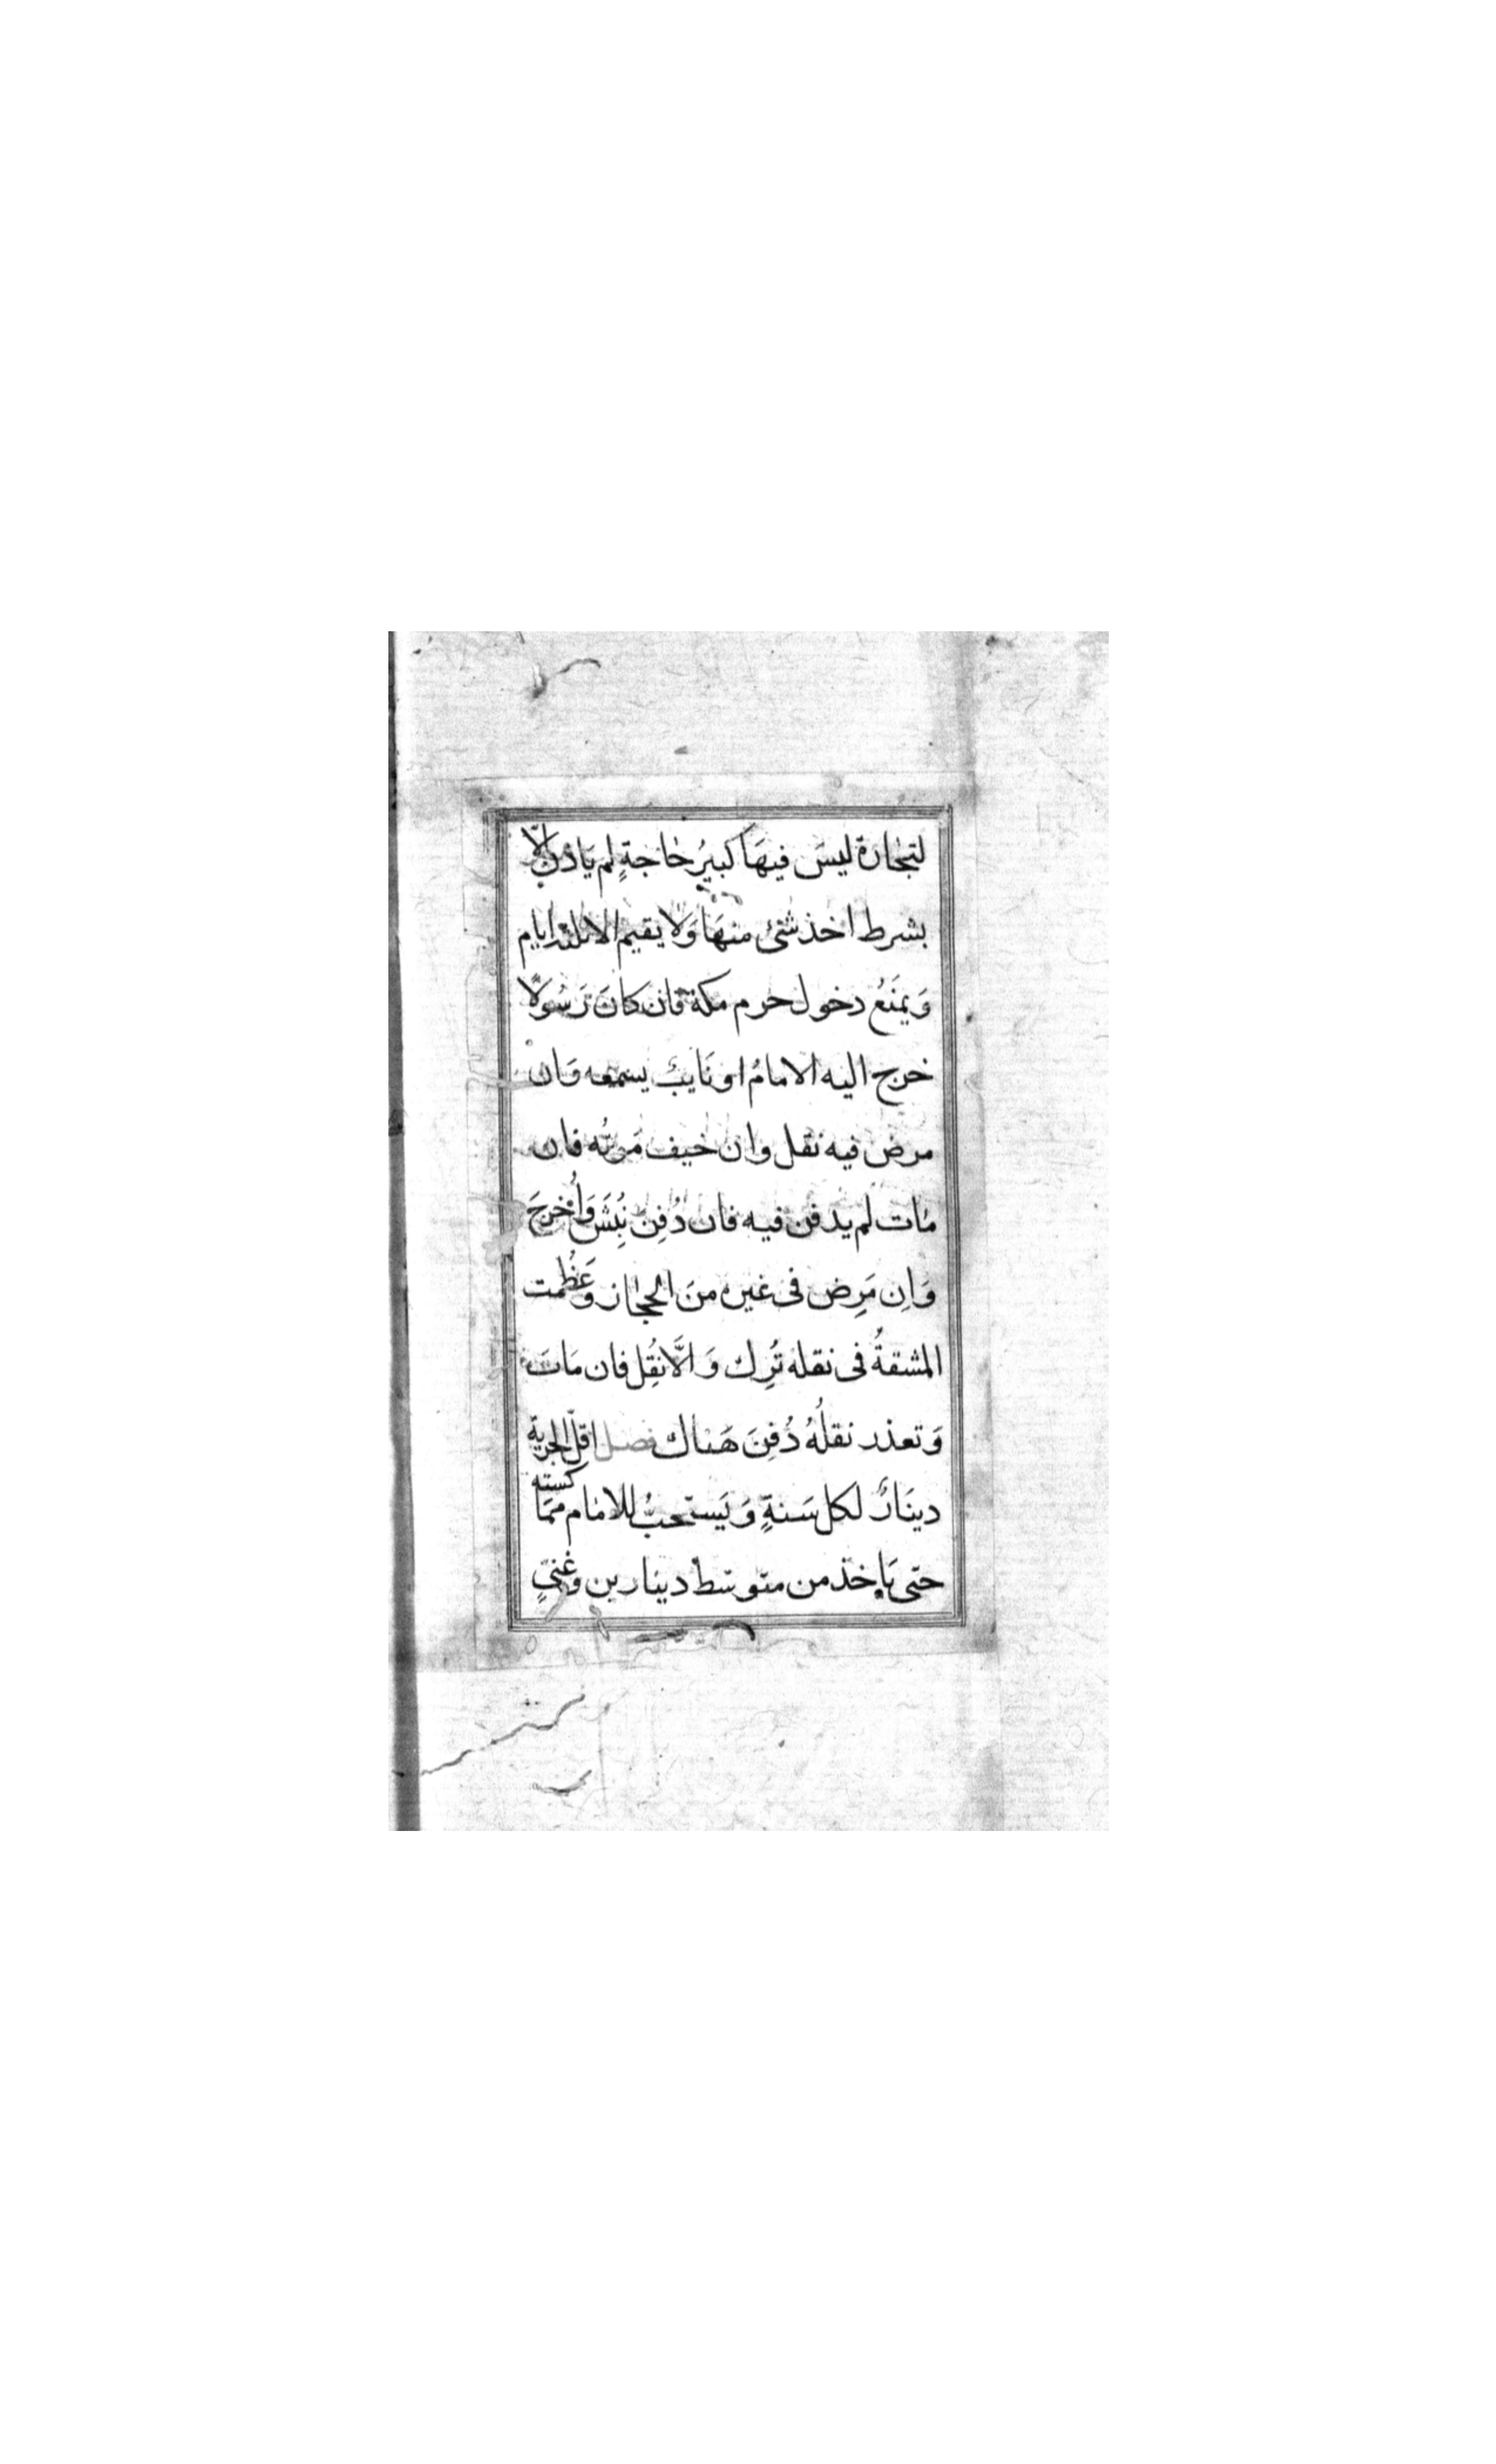 لتجارة ليسَ فيهَا كبيرُ حاجةٍ لم يَاذن الّا
بشرط اخذ شئ منهَا وَلا يقيم الا ثلثة ايام
وَيمنَعُ دخول حرم مكة فان كانَ رَسُولًا
خرج اليه الامامُ او نَايبٌ يسمعه وَان
مرض فيه نقل وان خيف مَوتُه فان
مات لم يدفن فيه فان دُفِنَ نُبِشَ وَاُخرجَ
وَاِن مَرِض فى غيره منَ الحجاز وعَظُمت
المشقةُ فى نقله تُرِك وَ الَّا نُقِل فان مَاتَ
وَتعذر نقلُهُ دُفِنَ هَناك فصل اقلّ الجزية
دينَارٌ لكل سَنةٍ وَ يَستحبُّ للامام مما كسته
حتّى يَاخذ من متوسّط دينارين وغنىٍّ